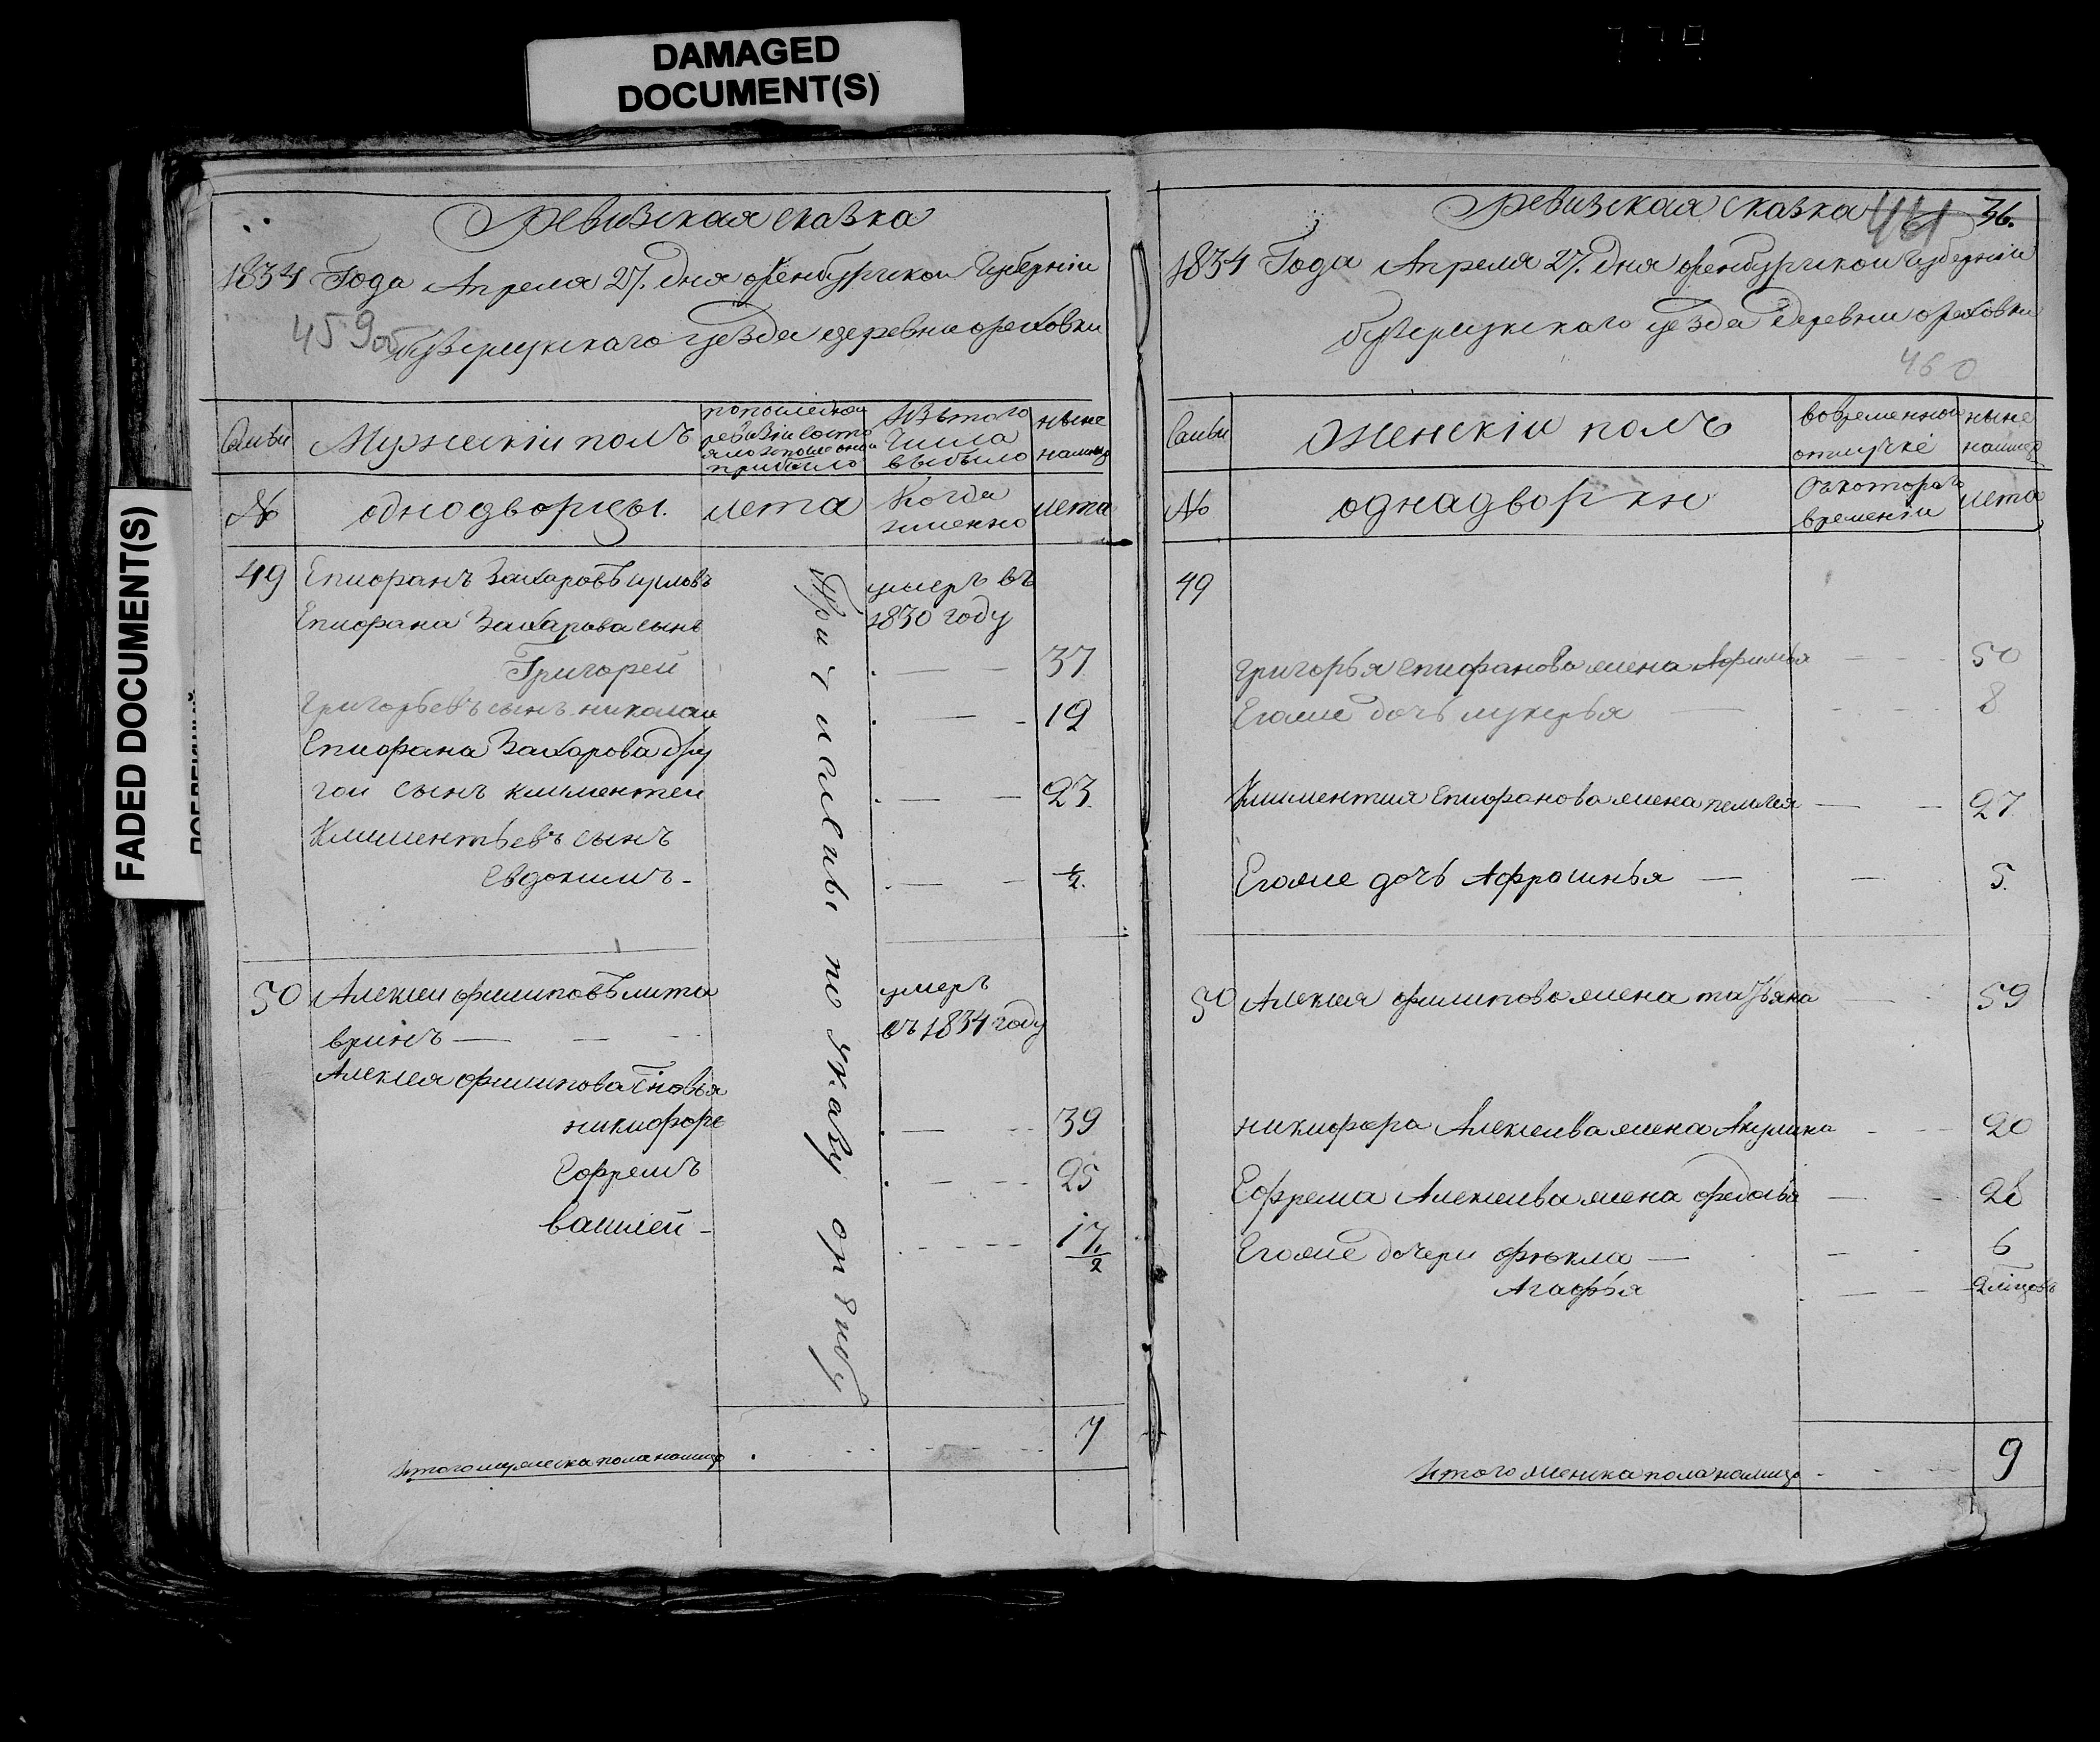 DAMAGED
DOCUMENT(S)
FADED DOCUMENT(S)
Ревизская сказка
1834 Года Апреля 27. дня оренбургской Губернiи
459об
бузулукскаго уезда деревни ореховки
Семьи
Мужескiи полъ
попоследной
ревизiи состо
яло
прибыло
Изътого
Числа
выбыло
ныне
налицо
№
однодворцы.
лета
Когда
именно
лета
49
Епифанъ Захаровъ
умеръ въ
Епифана Захарова сынъ
1830 году
Григорей
37
Григорьевъ сынъ николаи
19
Епифана Захарова дру
гои сынъ климентеи
23.
Климентьевъ сынъ
Евдокимъ
1/2.
50
Алексеи филиповъ мита
умеръ
вринъ
въ 1834 году
Алексея филипова сновья
никифоръ
39
Ефремъ
25
василей
17 1/2
Причислены по указу
7
Итого мужеска пола налицо
Ревизская сказка
461
36.
1834 Года Апреля 27. дня оренбургской Губернiи
бузулукскаго уезда деревни ореховки
460
Семьи
Женскiи полъ
вовременной
отлучке
ныне
налицо
№
однадворки
Съкотораго
времени
лета
49
григорья епифанова жена Афимья
50
Егоже дочь лукерья
8
Климентия Епифанова жена пелагея
27
Егоже дочь Афросинья
5.
50
Алексея филипова жена татьяна
59
никифора Алексеева жена Акулина
20
Ефрема Алексеева жена федосья
28
Егоже дочери фекла
6
Агафья
2 месецовъ
9
Итого женска пола налицо